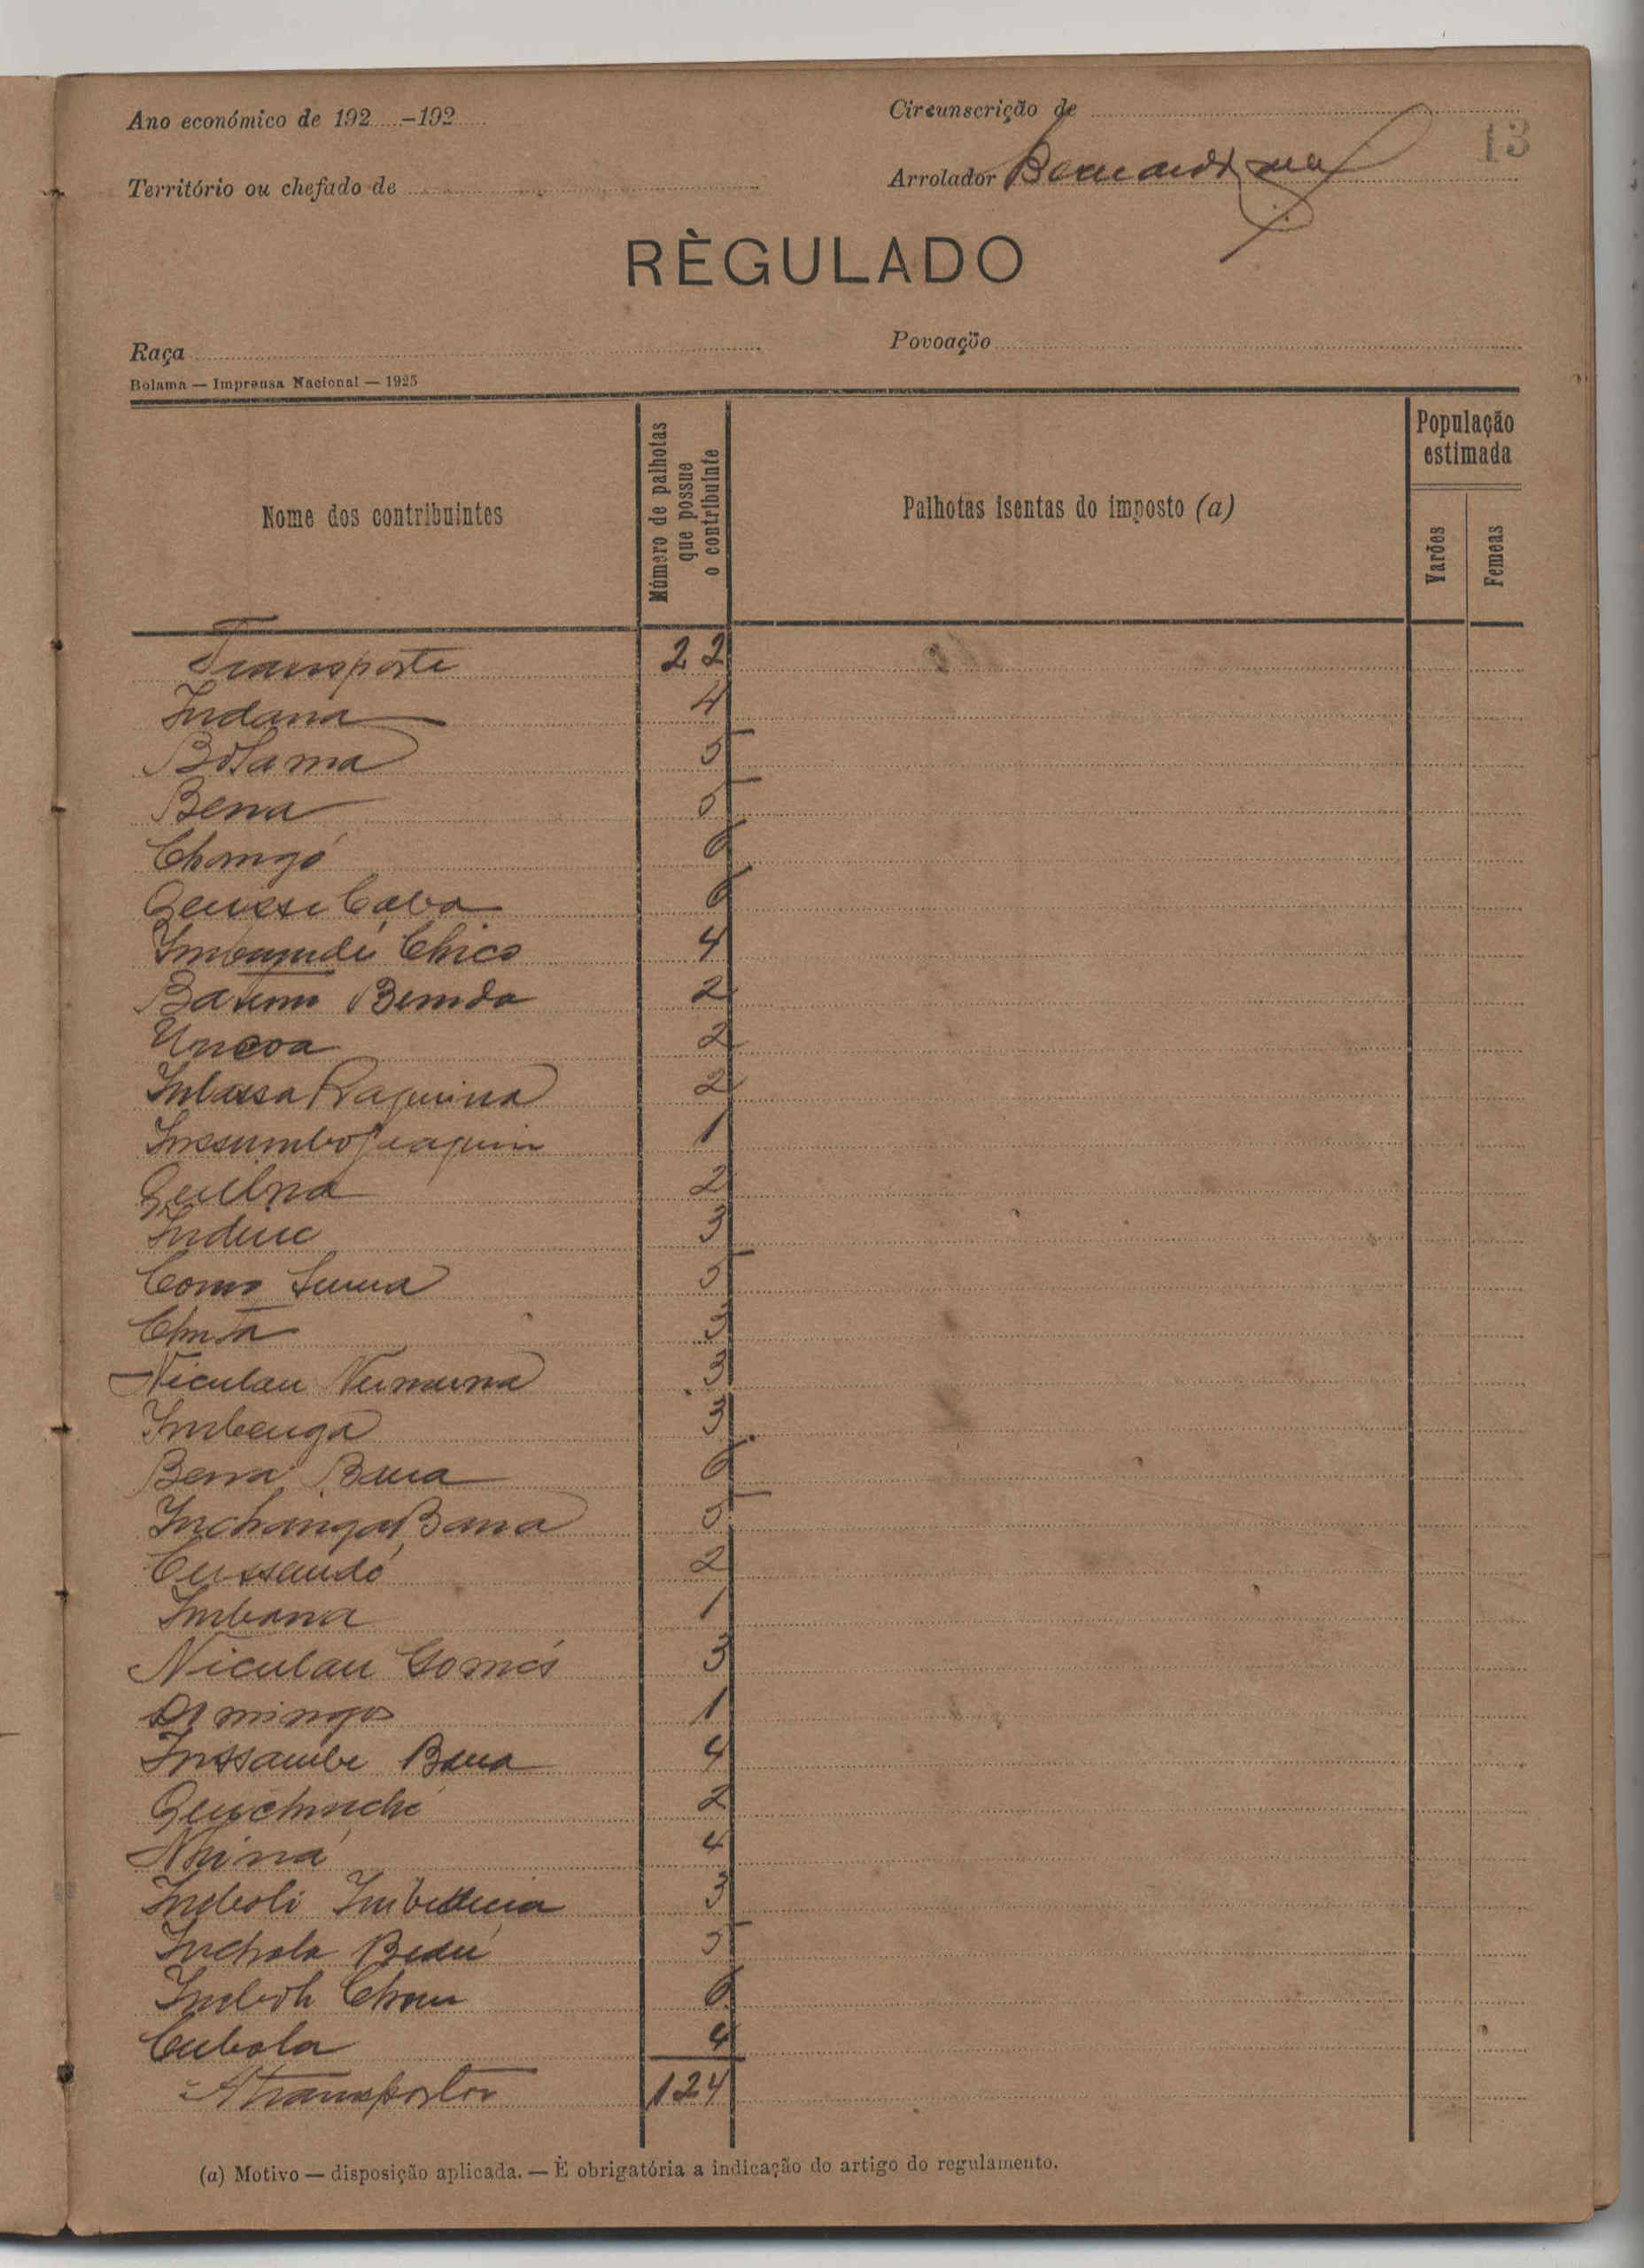 Ano económico de 192.....-192.....
Circunscrição de
13
Território ou chefado de
Arrolador
RÈGULADO
Raça
Povoação
Bolama — Imprensa Nacional — 1925
Nome dos contribuintes
Número de palhotas que possue o contribuinte
Palhotas isentas do imposto (a)
População estimada
Varões
Femeas
Transporte 22
Indana 4
Bolama 5
Bena 5
Chongó 6
Caba 6
Chico 4
Bemda 2
Uncoa 2
2
Inssumbo Juaquim 1
2
Induc 3
Como 5
3
Niculau 3
Imbenga 3
Bena Bana 6
Inchanga Bana 5
Cussandó 2
Imbana 1
Niculau Gomés 3
Domingos 1
Inssambe Bana 4
2
Nhiná 4
Indboli 3
Inchola 5
6
Cubola 4
A transportar 124
(a) Motivo — disposição aplicada. — È obrigatória a indicação do artigo do regulamento.